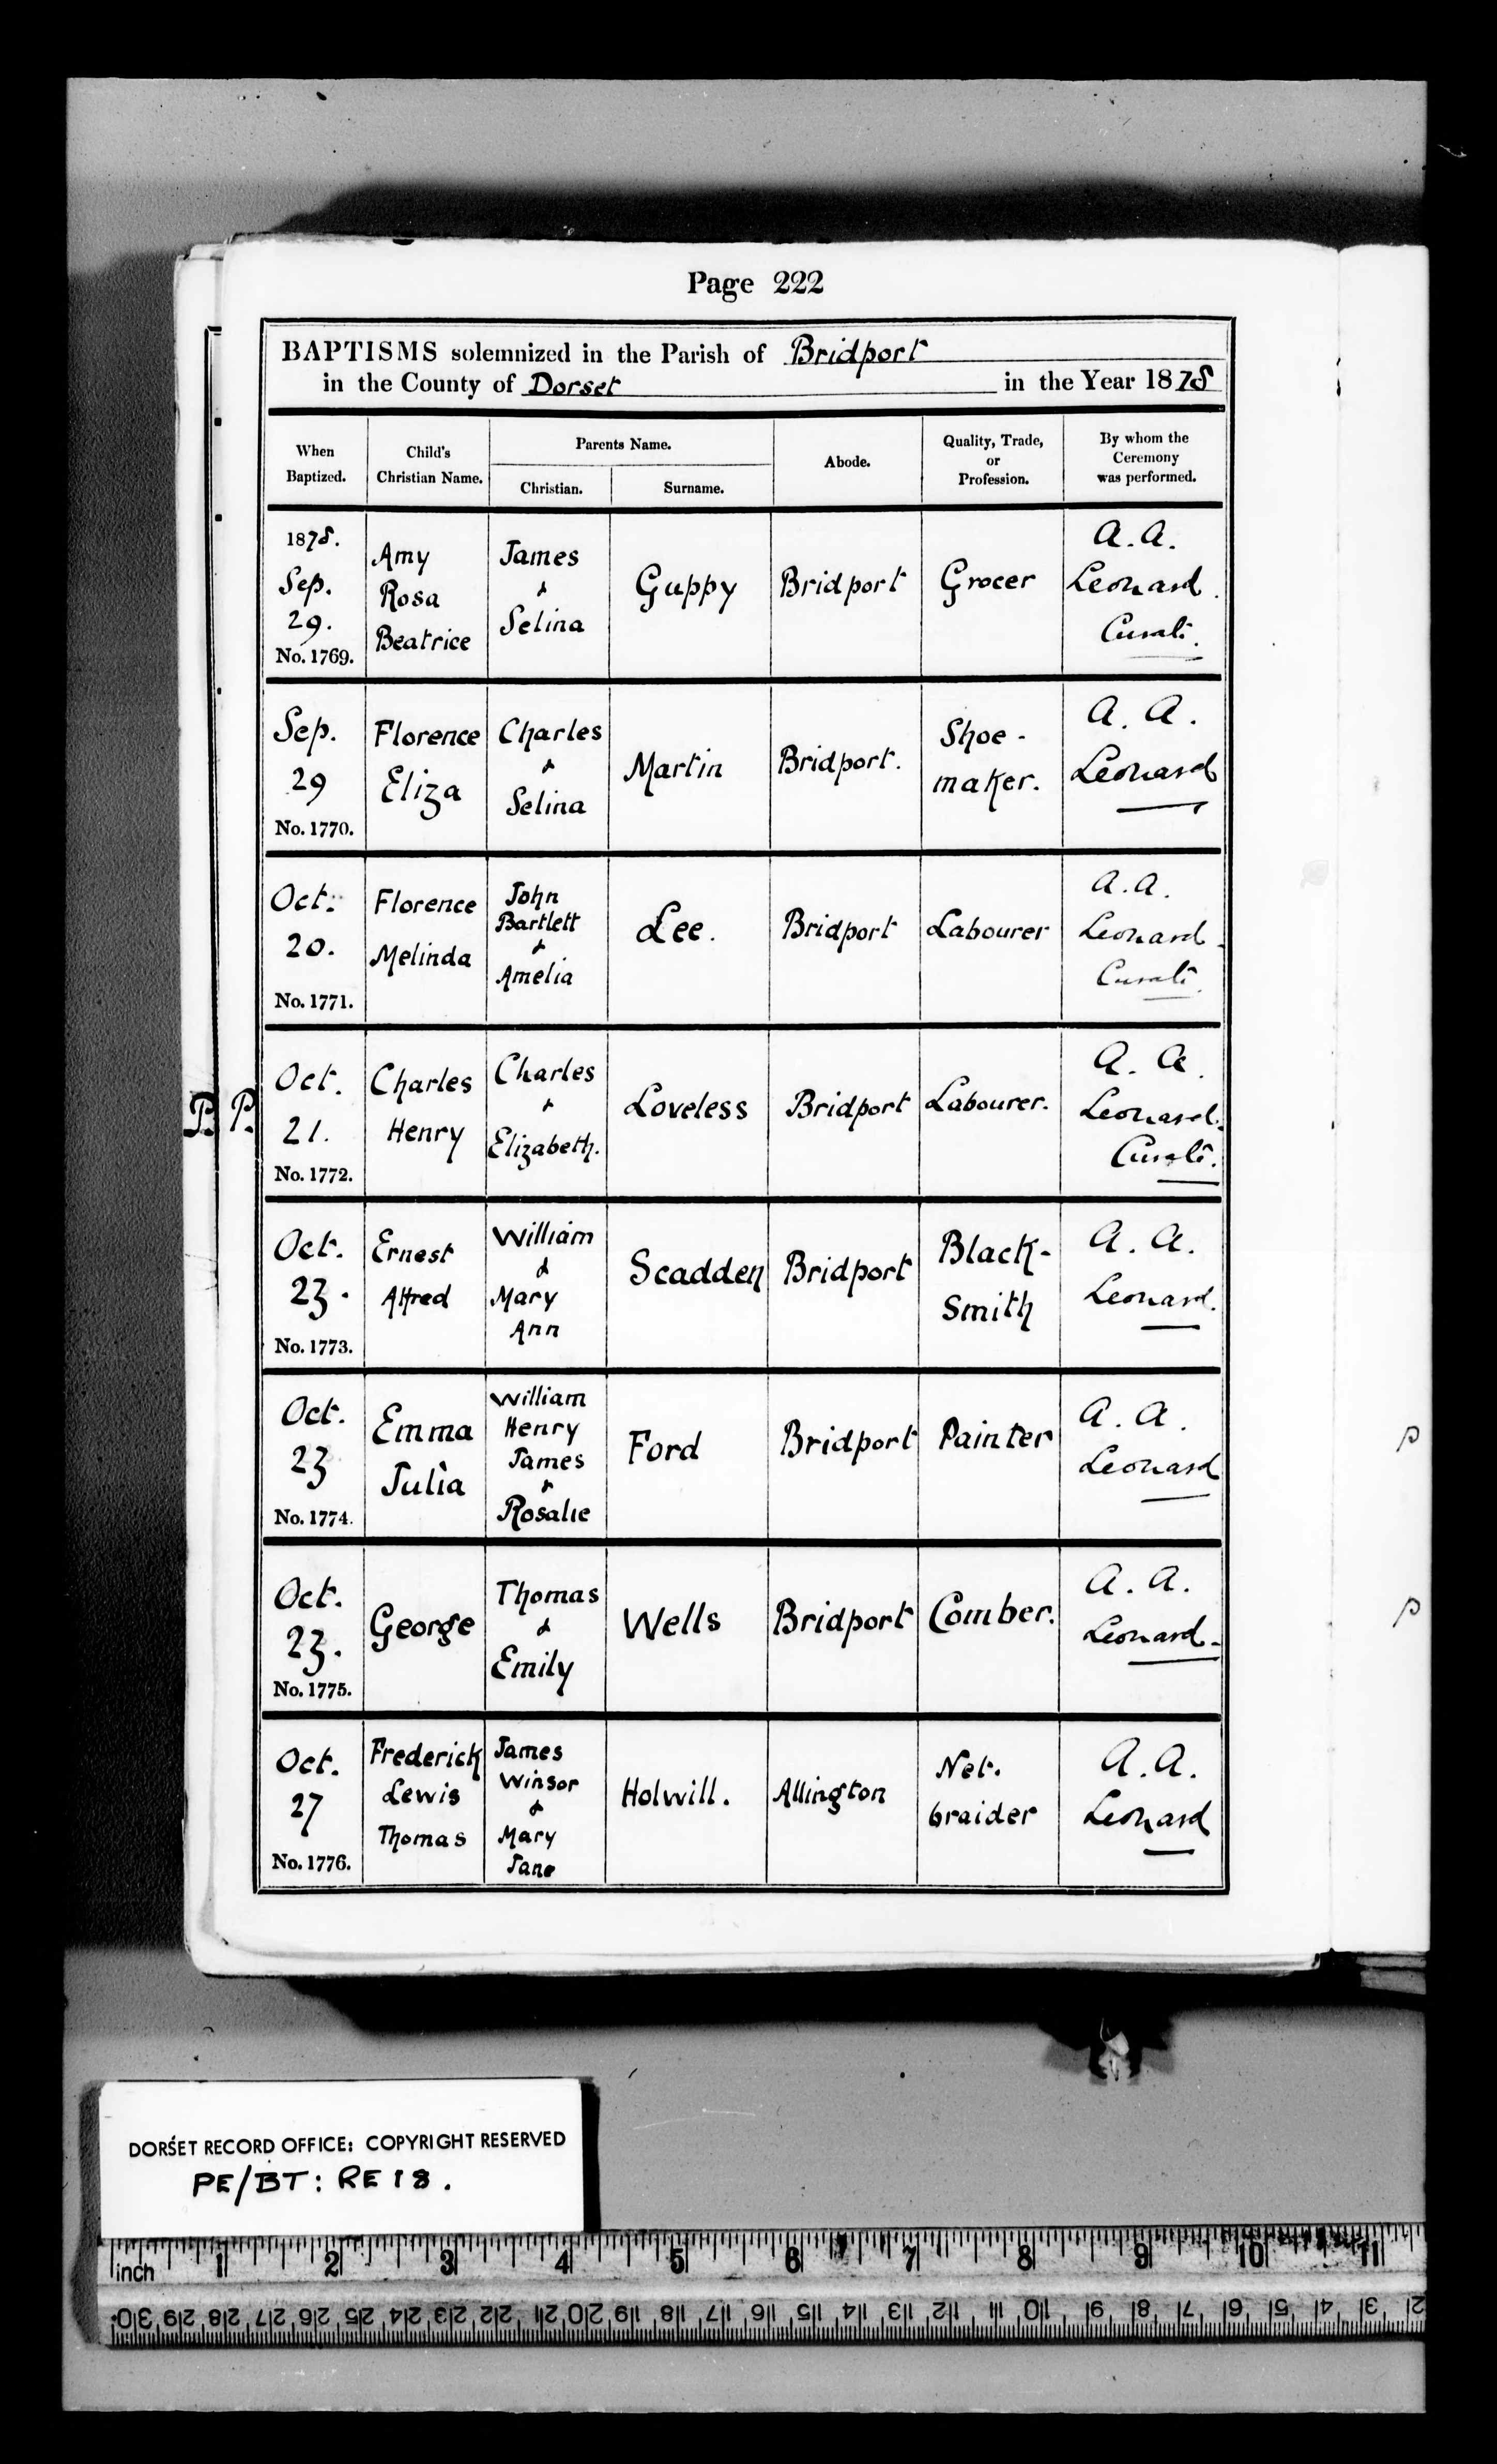 Page 222
BAPTISMS solemnized in the Parish of Bridport
in the County of Dorset in the Year 1878
When Baptized.
Child's Christian Name.
Parents Name.
Christian.
Surname.
Abode.
Quality, Trade, or Profession.
By whom the Ceremony was performed.
1878.
Sep.
29.
No. 1769.
Amy
Rosa
Beatrice
James
&
Selina
Guppy
Bridport
Grocer
A. A.
Leonard.
Curate.
Sep.
29
No. 1770.
Florence
Eliza
Charles
&
Selina
Martin
Bridport.
Shoe-
maker.
A. A.
Leonard
Oct.
20.
No. 1771.
Florence
Melinda
John
Bartlett
&
Amelia
Lee.
Bridport
Labourer
A. A.
Leonard
Curate.
P. P.
Oct.
21.
No. 1772.
Charles
Henry
Charles
&
Elizabeth.
Loveless
Bridport
Labourer.
A. A.
Leonard.
Curate.
Oct.
23.
No. 1773.
Ernest
Alfred
William
&
Mary
Ann
Scadden
Bridport
Black-
Smith
A. A.
Leonard.
Oct.
23
No. 1774.
Emma
Julia
William
Henry
James
&
Rosalie
Ford
Bridport
Painter
A. A.
Leonard
P
Oct.
23.
No. 1775.
George
Thomas
&
Emily
Wells
Bridport
Comber.
A. A.
Leonard
P
Oct.
27
No. 1776.
Frederick
Lewis
Thomas
James
Winsor
&
Mary
Jane
Holwill.
Allington
Net.
braider
A. A.
Leonard
DORSET RECORD OFFICE: COPYRIGHT RESERVED
PE/BT: RE18.
inch 1 2 3 4 5 6 7 8 9 10 11
30 29 28 27 26 25 24 23 22 21 20 19 18 17 16 15 14 13 12 11 10 9 8 7 6 5 4 3 2